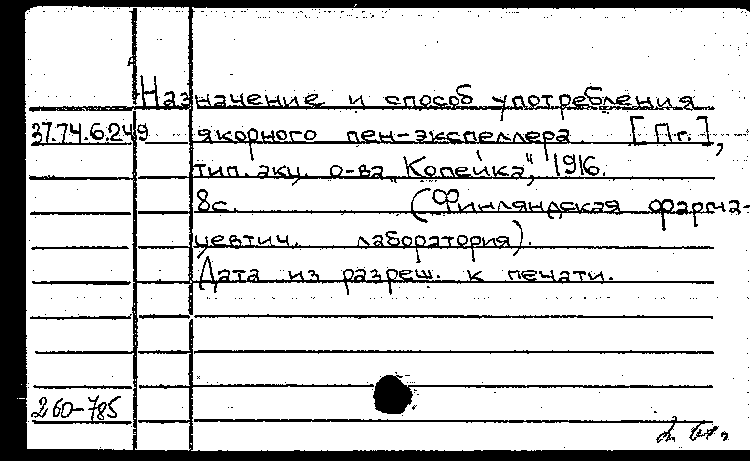 Назначение и способ употребления
37.74.6.249 якорного пен-экспеллера. [Пг.],
тип. акц. о-ва „Копейка", 1916.
8с. (Финляндская фарма-
цевтич. лаборатория).
Дата из разреш. к печати.
260-785